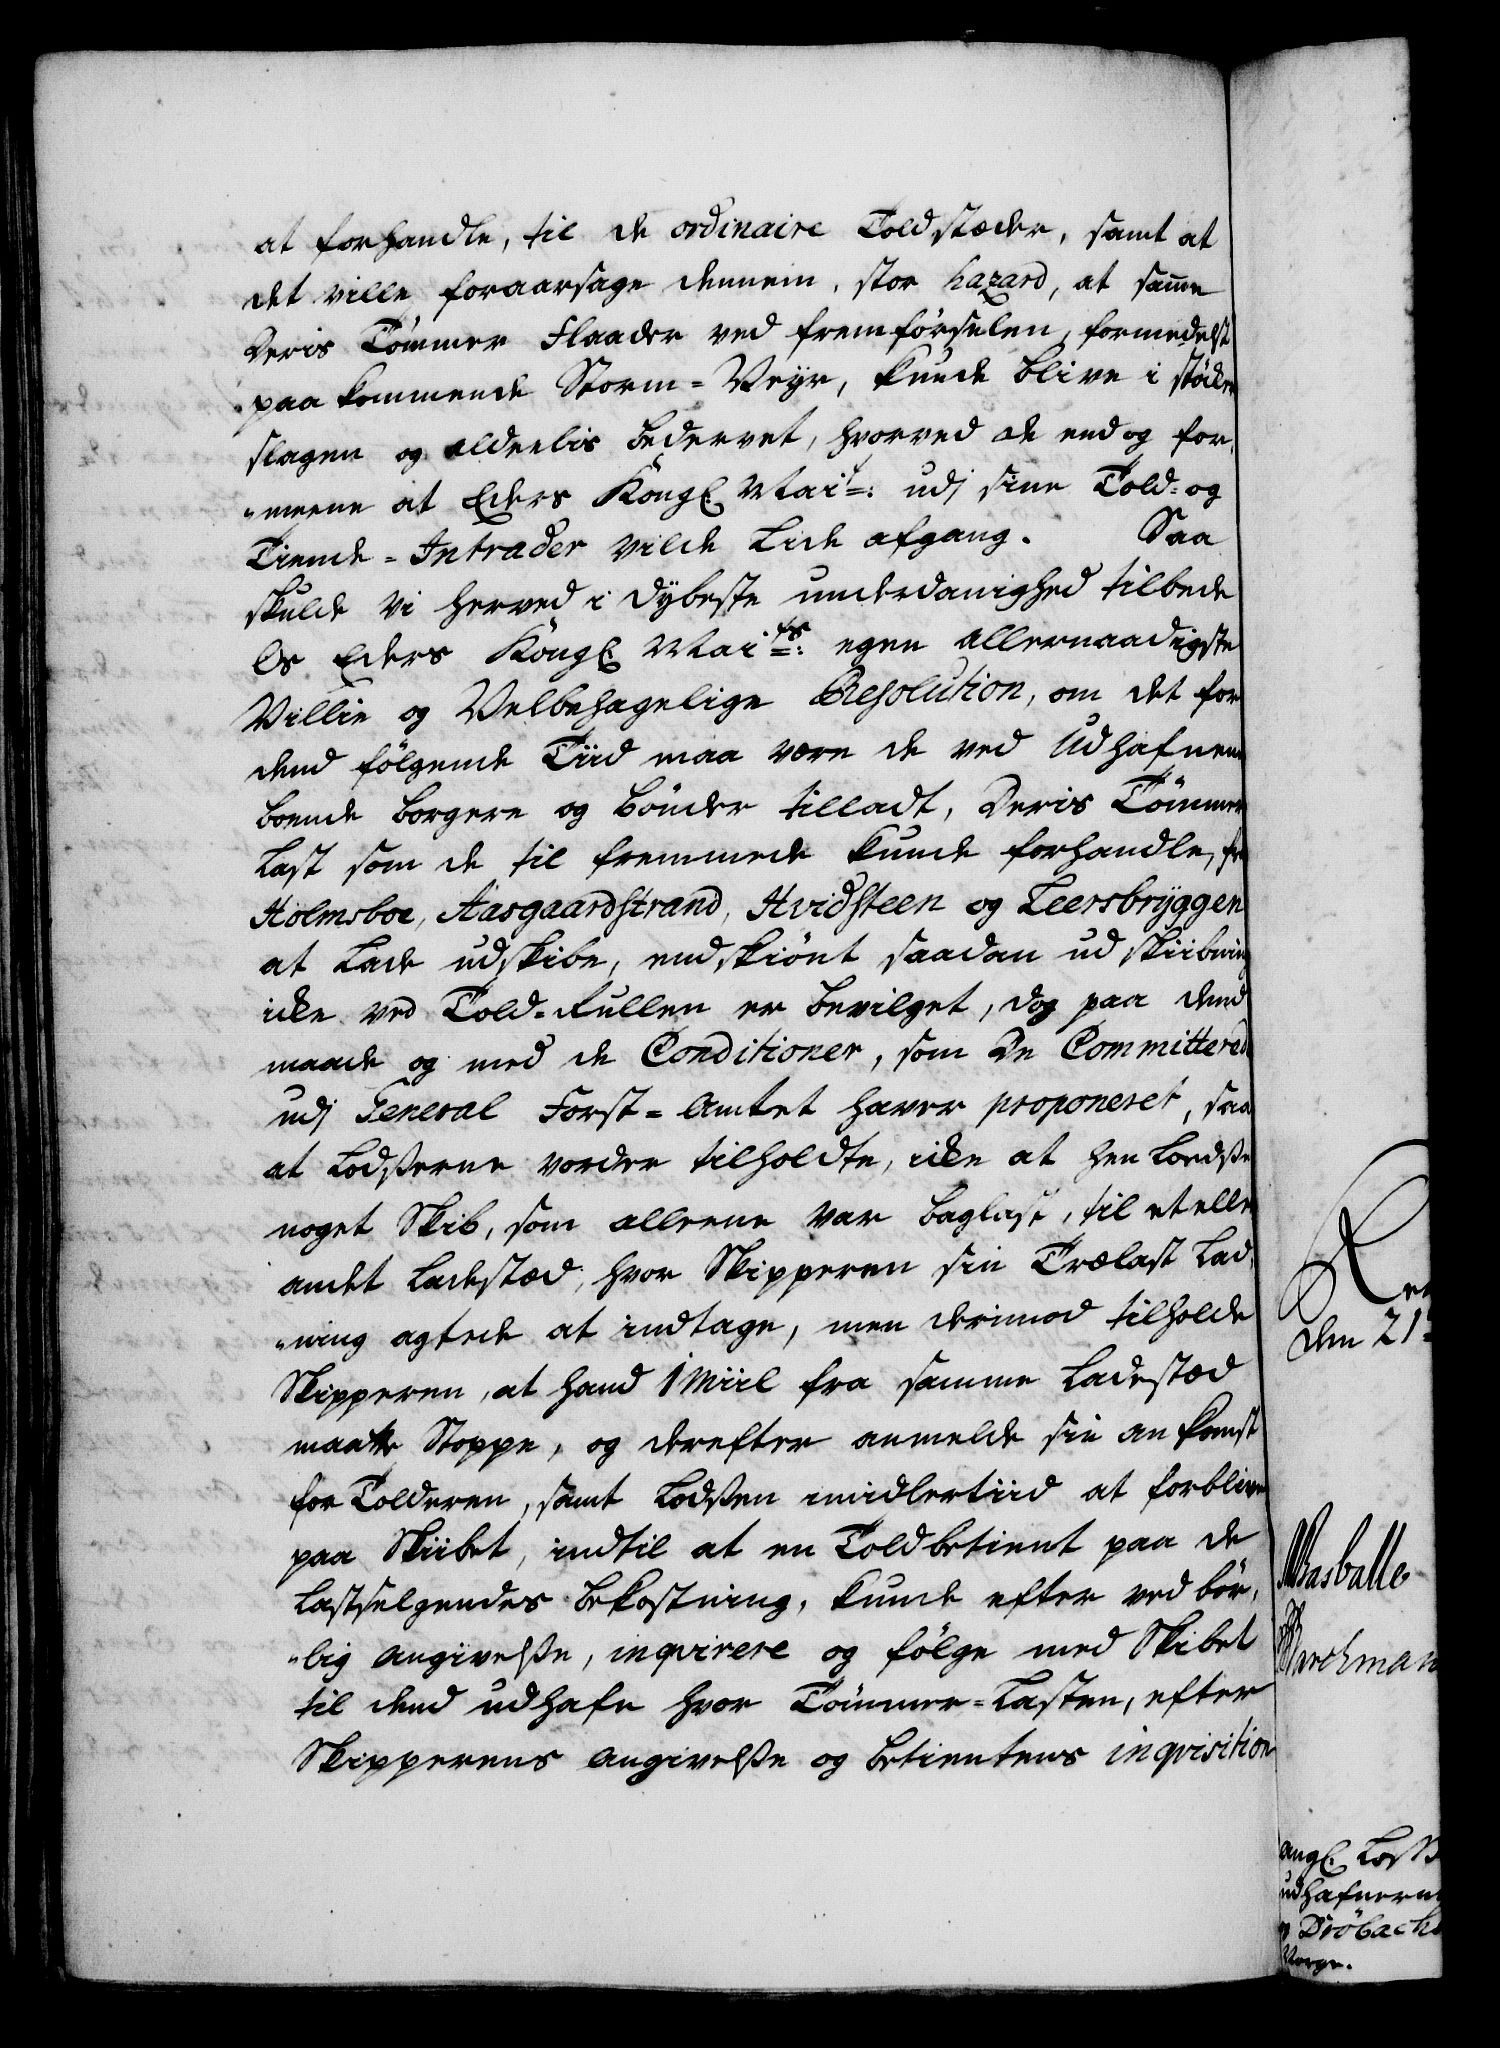 at forhandle, til de ordinaire Toldstæder, samt at
det ville foraarsage dennem, stor hazard, at samme
Deris Tömmer Flaader ved fremförselen, formedelst
paa kommende Storm=Veyr, kunde blive i stöcker
slagen og alderlis bedervet, hvorved de end og for,
„meene at Eders Kongl. Mait: udj sine Told= og
Tiende=Intrader vilde Lide afgang. Saa
skulde vi herved i dybeste underdanighed tilbede
Os Eders Kongl. Maits: egen allernaadigste
Villie og Velbehagelige Resolution, om det for
dend fölgende Tiid maa være de ved Udhafnene
boende borgere og bönder tilladt, Deris Tömmer
Last som de til fremmede kunde forhandle, fra
Holmsboe, Aasgaardstrand, Hvidsteen og Leersbryggen
at Lade udskibe, endskiönt saadan ud skiibning
icke ved Told=Rullen er bevilget, dog paa dend
maade og med de Conditioner, som De Committerede
udj General Forst=Amtet haver proponeret, saa
at Lodsserne vorder tilholdte, icke at hen Loedsse
noget Skib, som alleene var baglast, til et eller
andet Ladested, hvor Skipperen sin Trælast Lad,
„ning agtede at indtage, men derimod tilholde
Skipperen, at hand 1 Miil fra samme Ladestæd
maatte Stoppe, og derefter anmelde sin an komst
for Tolderen, samt Lodssen imidlertiid at forblive
paa Skiibet, indtil at en Toldbetient paa de
Lastselgendes bekostning, kunde efter ved bör,
„lig angivelsse, inqvirere og fölge med Skibet
til dend udhafn hvor Tömmer=Lasten, efter
Skipperens angivelsse og betientens inqvisition
den 21
Basballe
udhafnerne
Dröbachs
Norge.